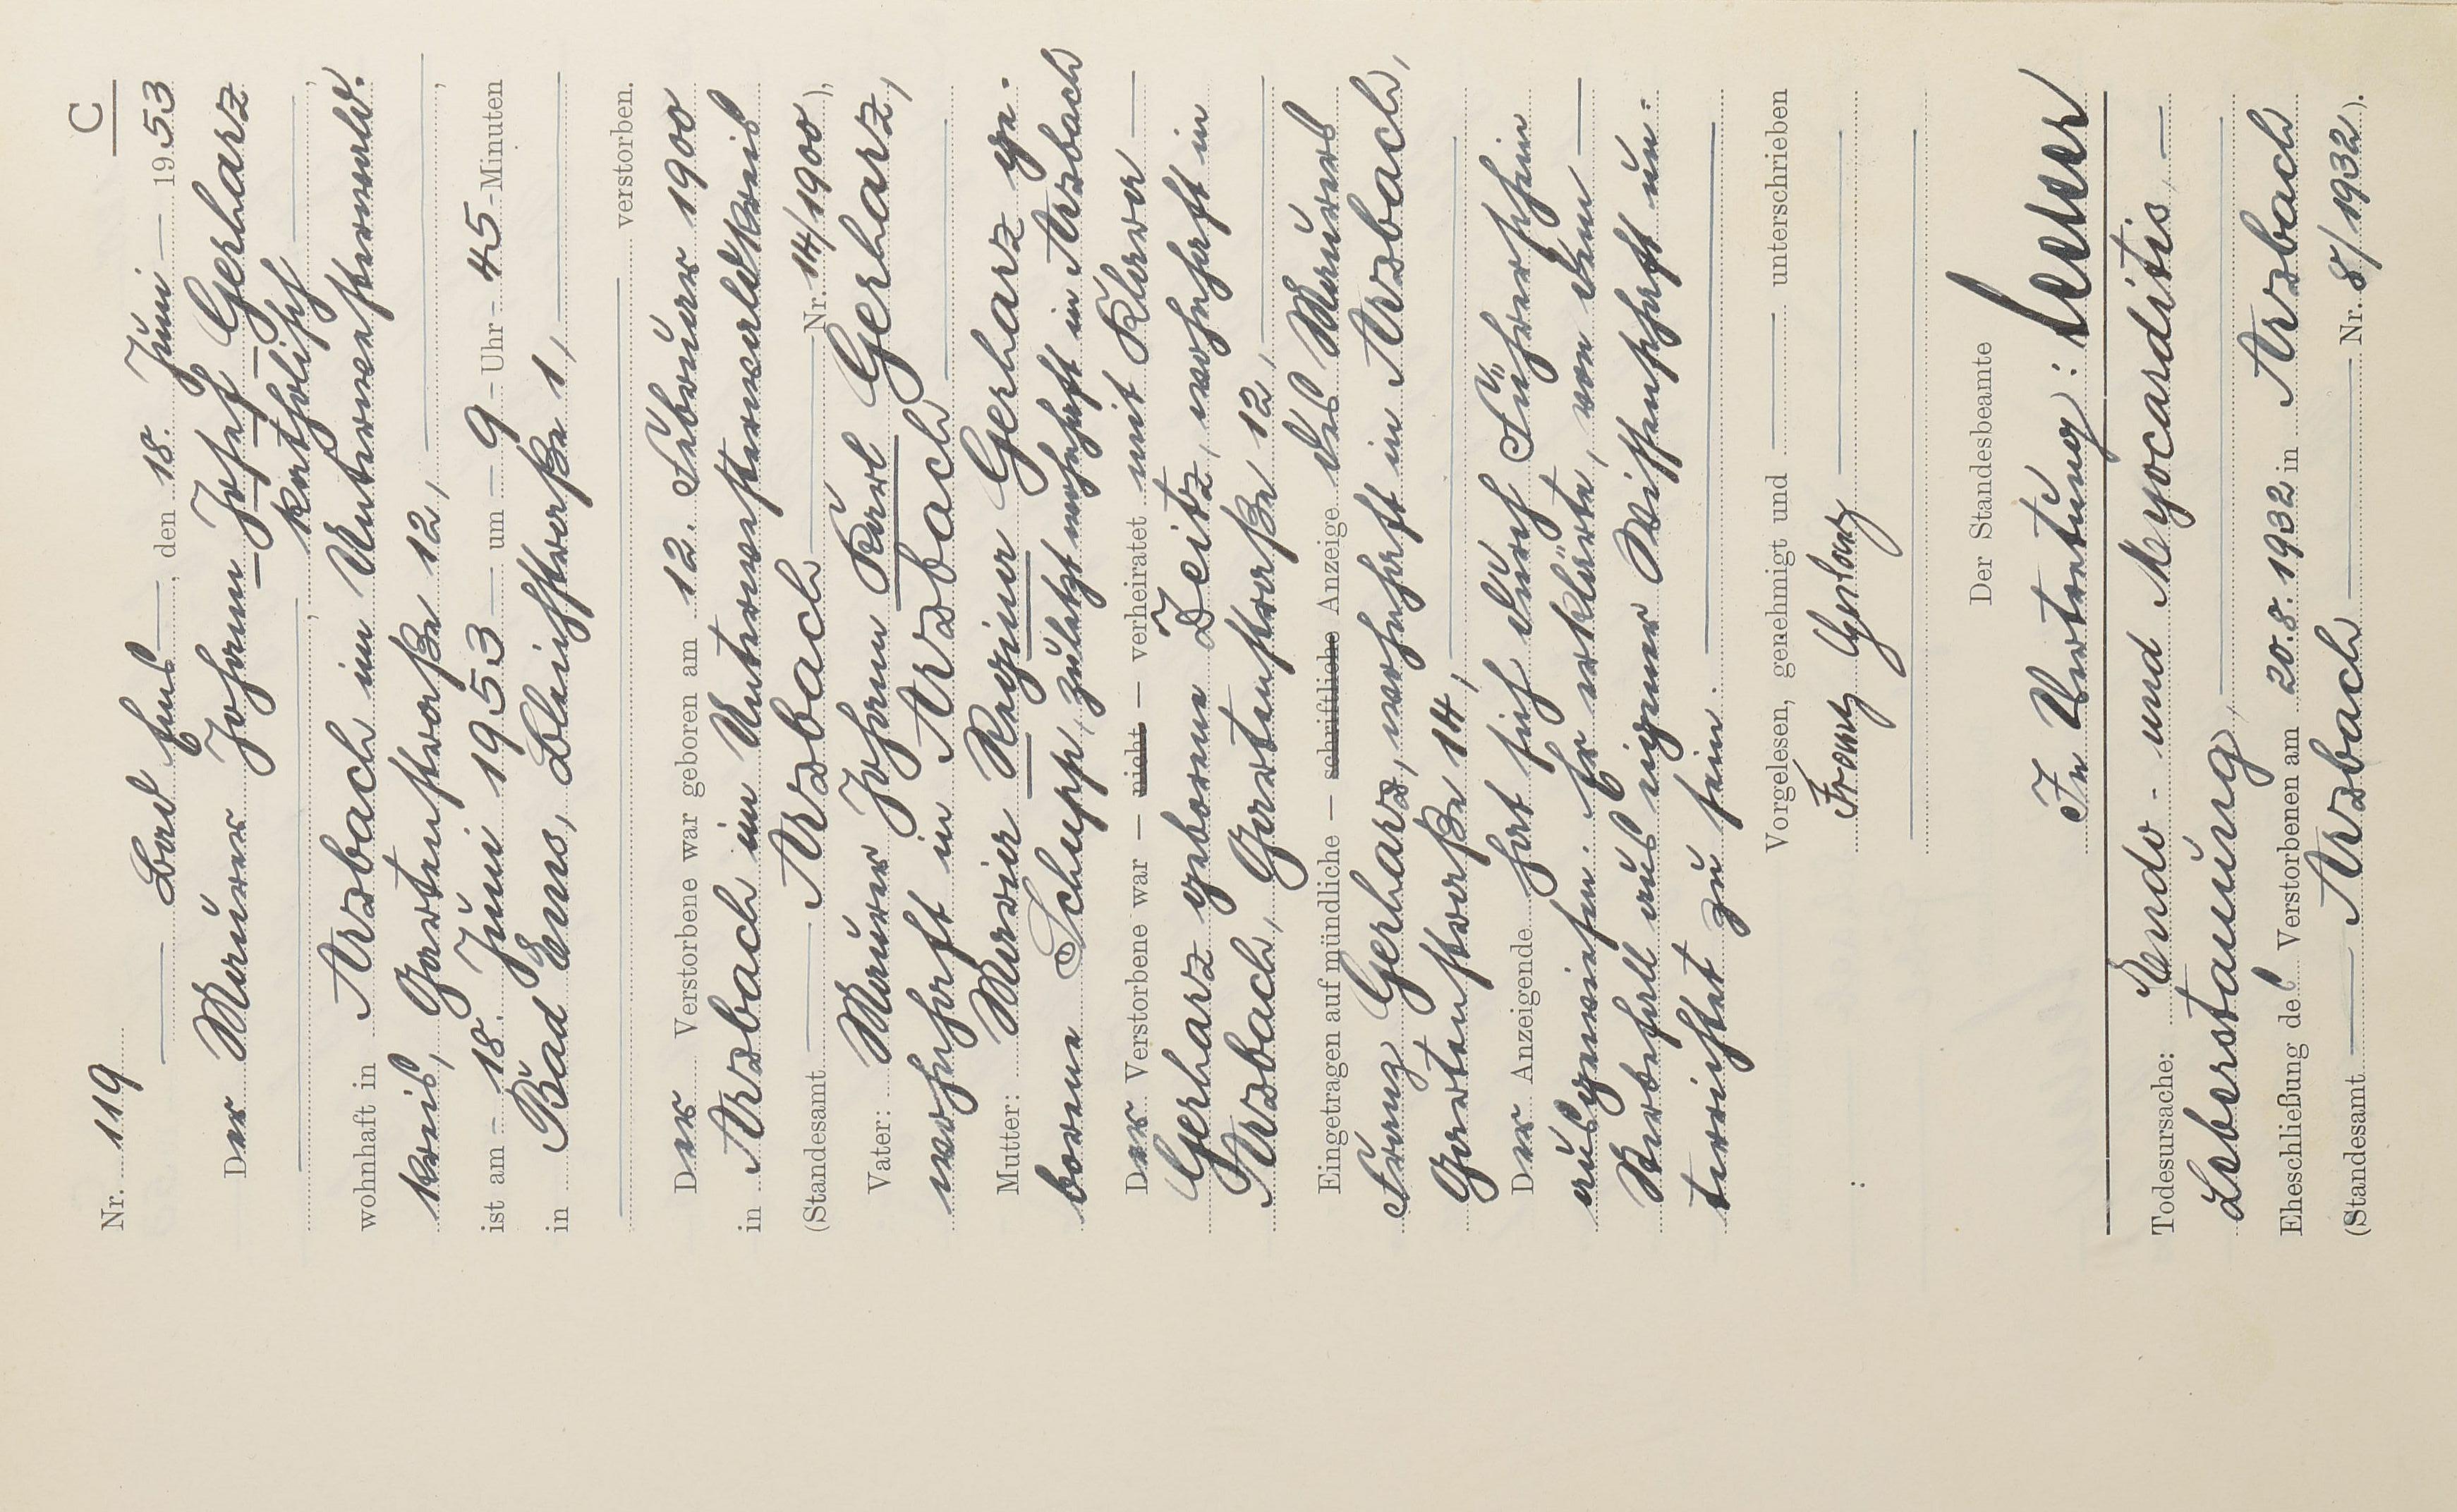 C
Nr. 119
Bad Ems, den 18. Juni 1953
Der Maurer Johann Josef Gerharz
katholisch,
wohnhaft in Arzbach im Unterwesterwald-
kreis, Gartenstraße 12,
ist am - 18. Juni 1953 um - 9 - Uhr - 45 - Minuten
in Bad Ems, Bleichstraße 1,
verstorben.
Der Verstorbene war geboren am 12. Februar 1900
in Arzbach im Unterwesterwaldkreis
(Standesamt Arzbach Nr. 14/1900),
Vater: Maurer Johann Karl Gerharz,
wohnhaft in Arzbach
Mutter: Maria Regina Gerharz ge-
borene Schupp, zuletzt wohnhaft in Arzbach
Der Verstorbene war — nicht — verheiratet mit Klara
Gerharz geborene Zeitz, wohnhaft in
Arzbach, Gartenstraße 12,
Eingetragen auf mündliche — schriftliche Anzeige des Maurers
Franz Gerharz, wohnhaft in Arzbach,
Gartenstraße 14,
Der Anzeigende hat sich durch Führerschein
ausgewiesen. Er erklärte, von dem
Sterbefall aus eigener Wissenschaft un-
terrichtet zu sein.
Vorgelesen, genehmigt und unterschrieben
: Franz Gerharz
Der Standesbeamte
In Vertretung:
Todesursache: Endo- und Myocarditis,
Leberstauung,
Eheschließung des Verstorbenen am 20.8.1932 in Arzbach
(Standesamt Arzbach Nr. 8/1932).